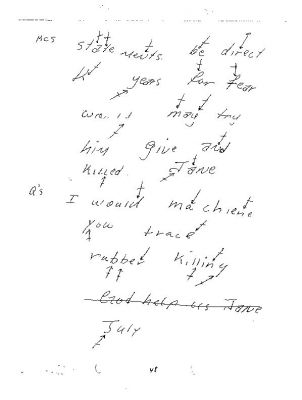 MCS statements be direct
years for fear
may try
him give and
killed Jane
Q's I would machiene
You trace
rubber killing
God help us Jane
July
48